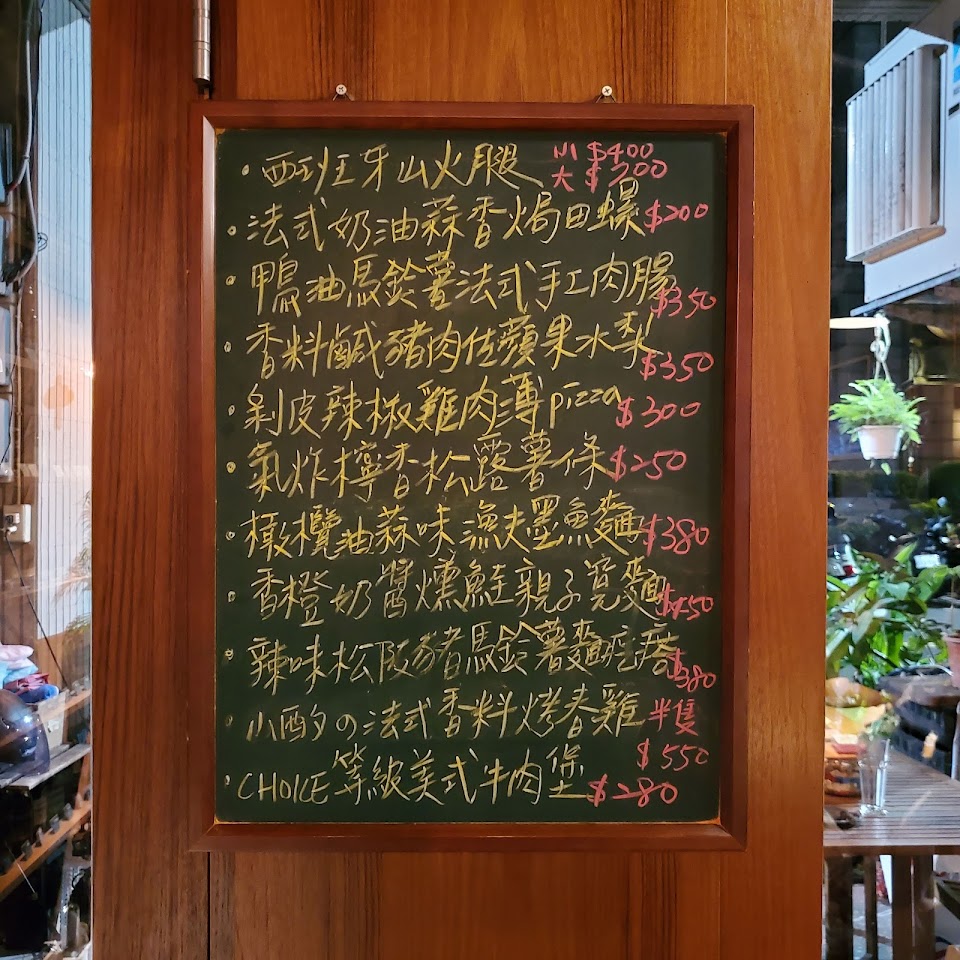 ・西班牙山火腿 小 $400
大 $700
・法式奶油蒜香焗田螺 $200
・鴨油馬鈴薯法式手工肉腸 $350
・香料鹹豬肉佐蘋果水梨 $350
・剝皮辣椒雞肉薄pizza $300
・氣炸檸香松露薯條 $250
・橄欖油蒜味漁夫墨魚麵 $380
・香橙奶醬燻鮭親子寬麵 $450
・辣味松阪豬馬鈴薯麵疙瘩 $380
・小酌の法式香料烤春雞 半隻
$550
・CHOICE等級美式牛肉堡 $280